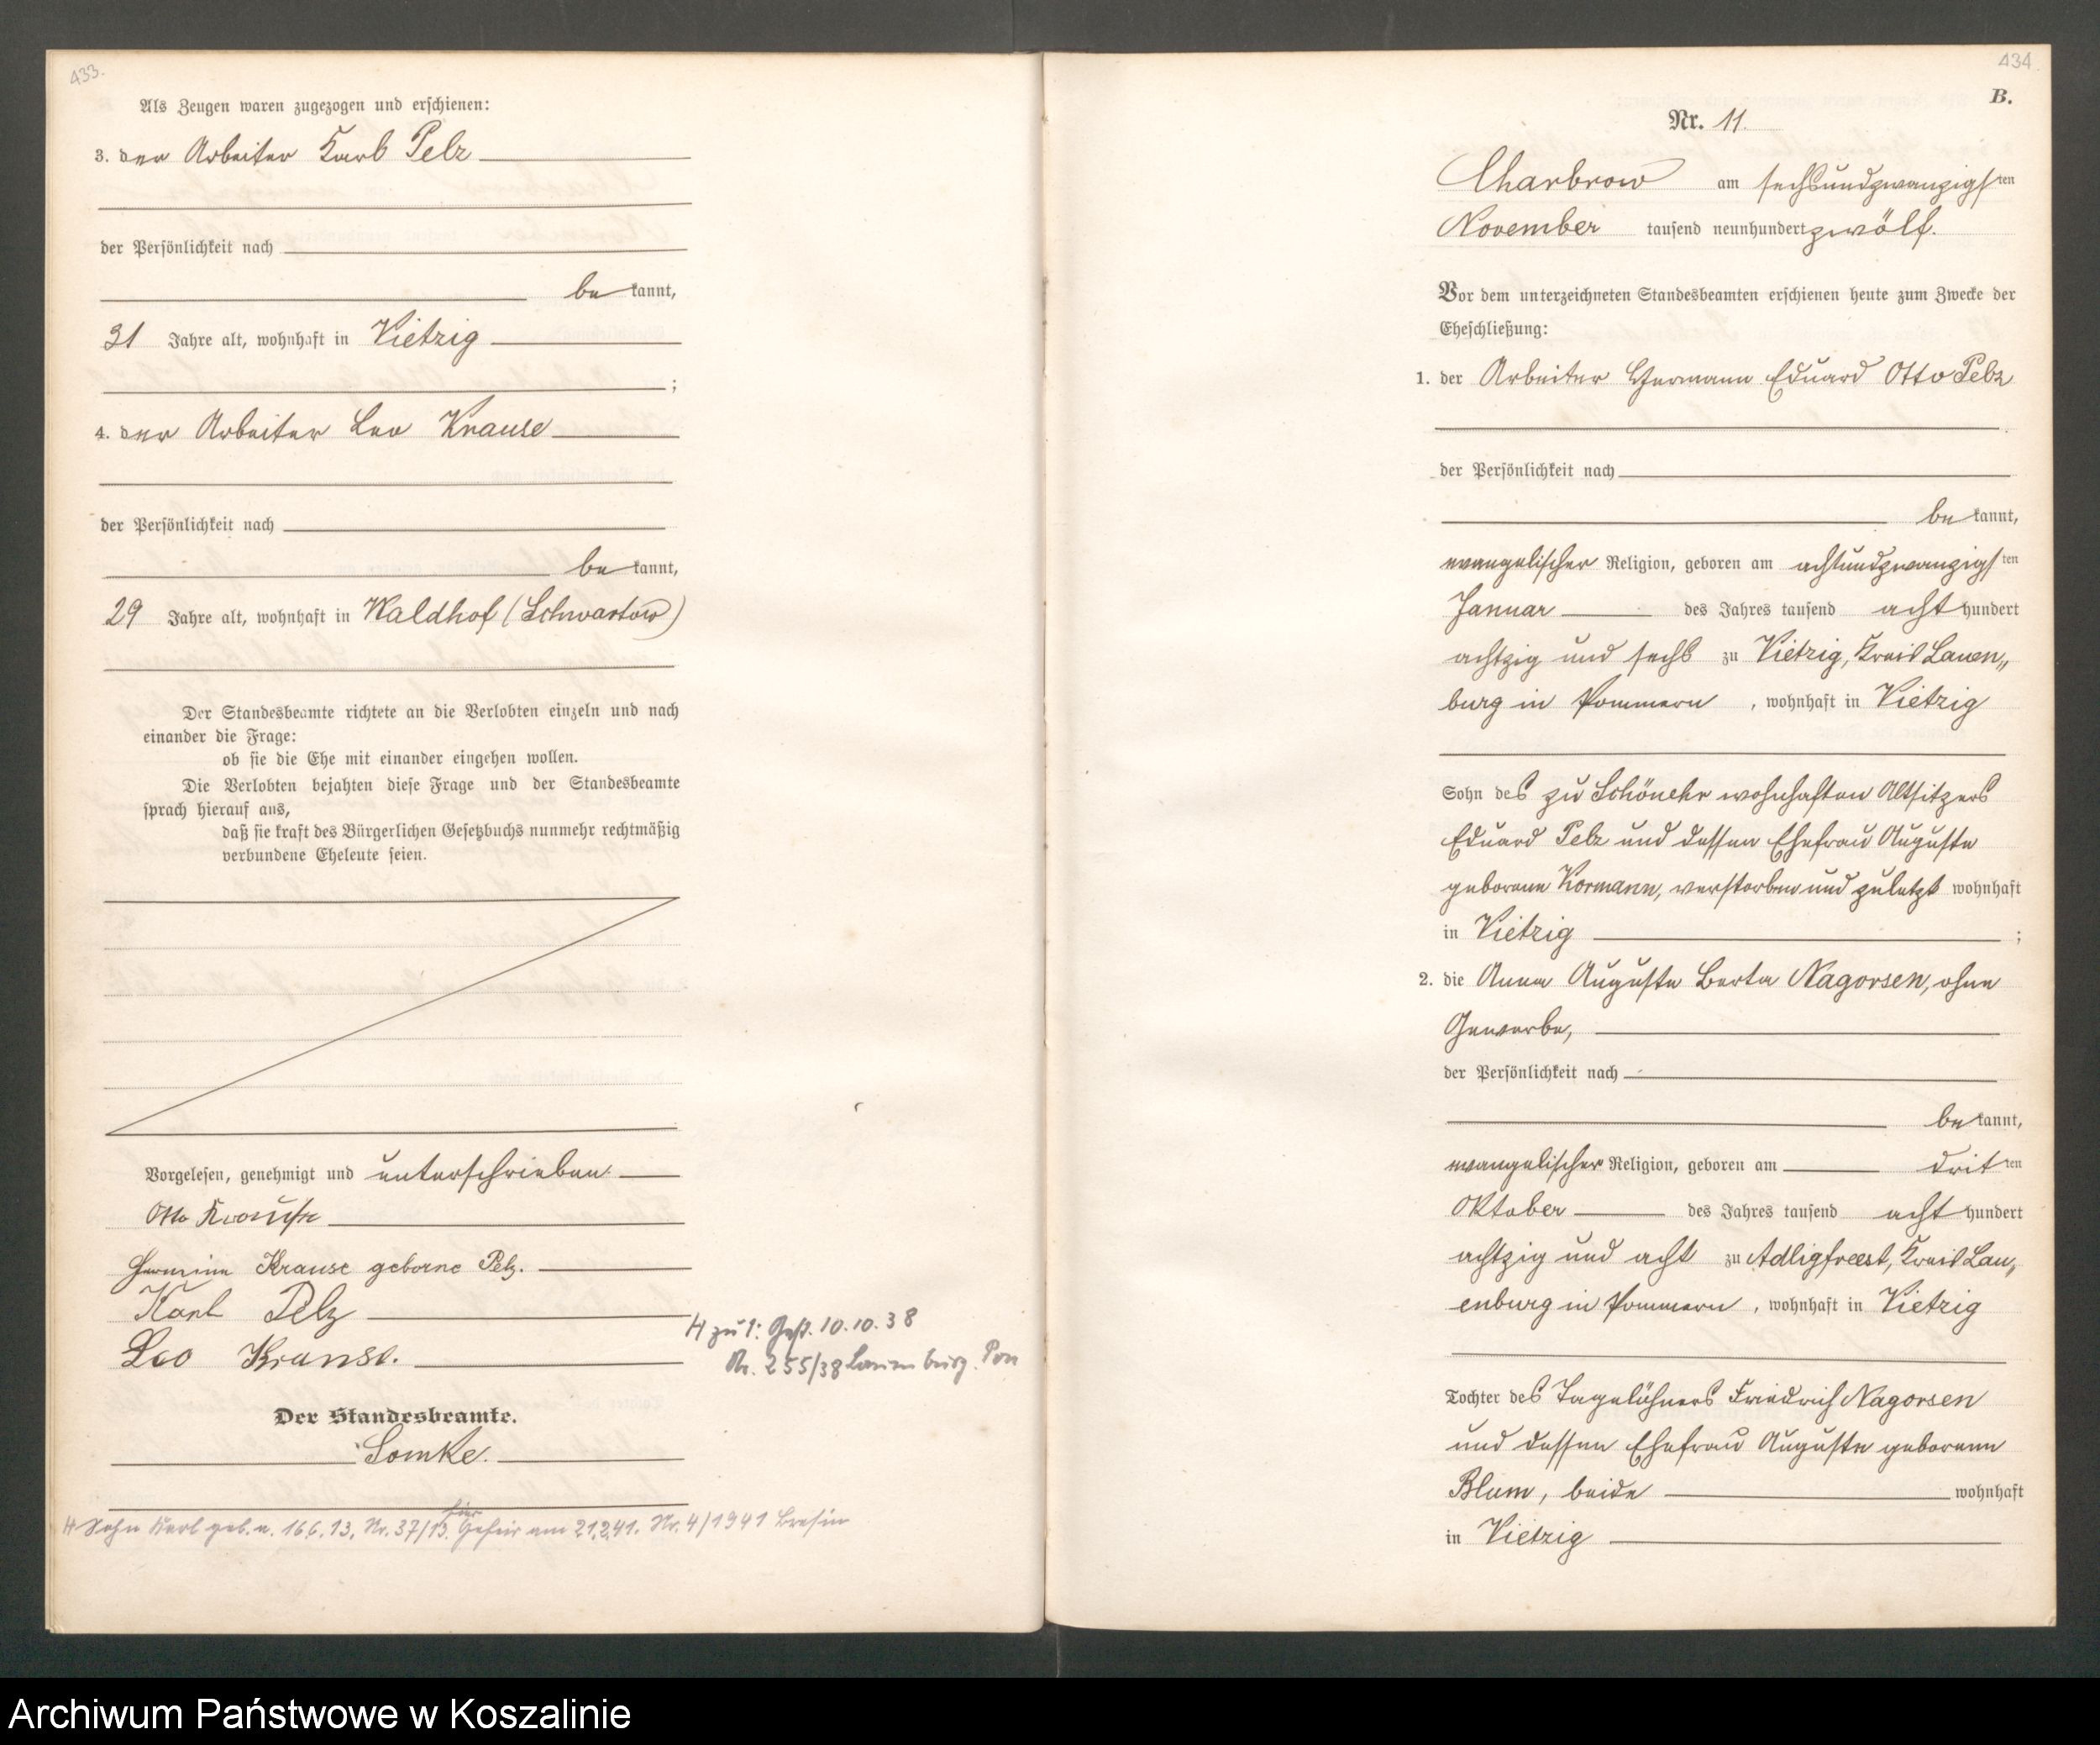 433.
Als Zeugen waren zugezogen und erschienen:
3. der Arbeiter Karl Pelz
der Persönlichkeit nach
be kannt,
31 Jahre alt, wohnhaft in Vietzig
;
4. der Arbeiter Leo Krause
der Persönlichkeit nach
be kannt,
29 Jahre alt, wohnhaft in Waldhof (Schwartow)
Der Standesbeamte richtete an die Verlobten einzeln und nach
einander die Frage:
ob sie die Ehe mit einander eingehen wollen.
Die Verlobten bejahten diese Frage und der Standesbeamte
sprach hierauf aus,
daß sie kraft des Bürgerlichen Gesetzbuchs nunmehr rechtmäßig
verbundene Eheleute seien.
Vorgelesen, genehmigt und unterschrieben.
Otto Krause
Hermine Krause geborne Pelz.
Karl Pelz
Leo Krause.
H zu 1: Gest. 10.10.38
Nr. 255/38 Lauenburg. Pom
Der Standesbeamte.
Lomke.
H Sohn Karl geb. a. 16.6.13. Nr. 37/13. hier
am 21.2.41. Nr. 4/1941 Bresin
434
B.
Nr. 11.
Charbrow am sechsundzwanzigsten
November tausend neunhundert zwölf.
Vor dem unterzeichneten Standesbeamten erschienen heute zum Zwecke der
Eheschließung:
1. der Arbeiter Hermann Eduard Otto Pelz
der Persönlichkeit nach
be kannt,
evangelischer Religion, geboren am achtundzwanzigsten
Januar des Jahres tausend acht hundert
achtzig und sechs zu Vietzig, Kreis Lauen„
burg in Pommern , wohnhaft in Vietzig
Sohn des zu Schönehr wohnhaften Altsitzers
Eduard Pelz und dessen Ehefrau Auguste
geborene Kormann, verstorben und zuletzt wohnhaft
in Vietzig ;
2. die Anna Auguste Berta Nagorsen, ohne
Gewerbe,
der Persönlichkeit nach
be kannt,
evangelischer Religion, geboren am dritten
Oktober des Jahres tausend acht hundert
achtzig und acht zu Adligfreest, Kreis Lau„
enburg in Pommern , wohnhaft in Vietzig
Tochter des Tagelöhners Friedrich Nagorsen
und dessen Ehefrau Auguste geborenen
Blum, beide wohnhaft
in Vietzig
Archiwum Państwowe w Koszalinie